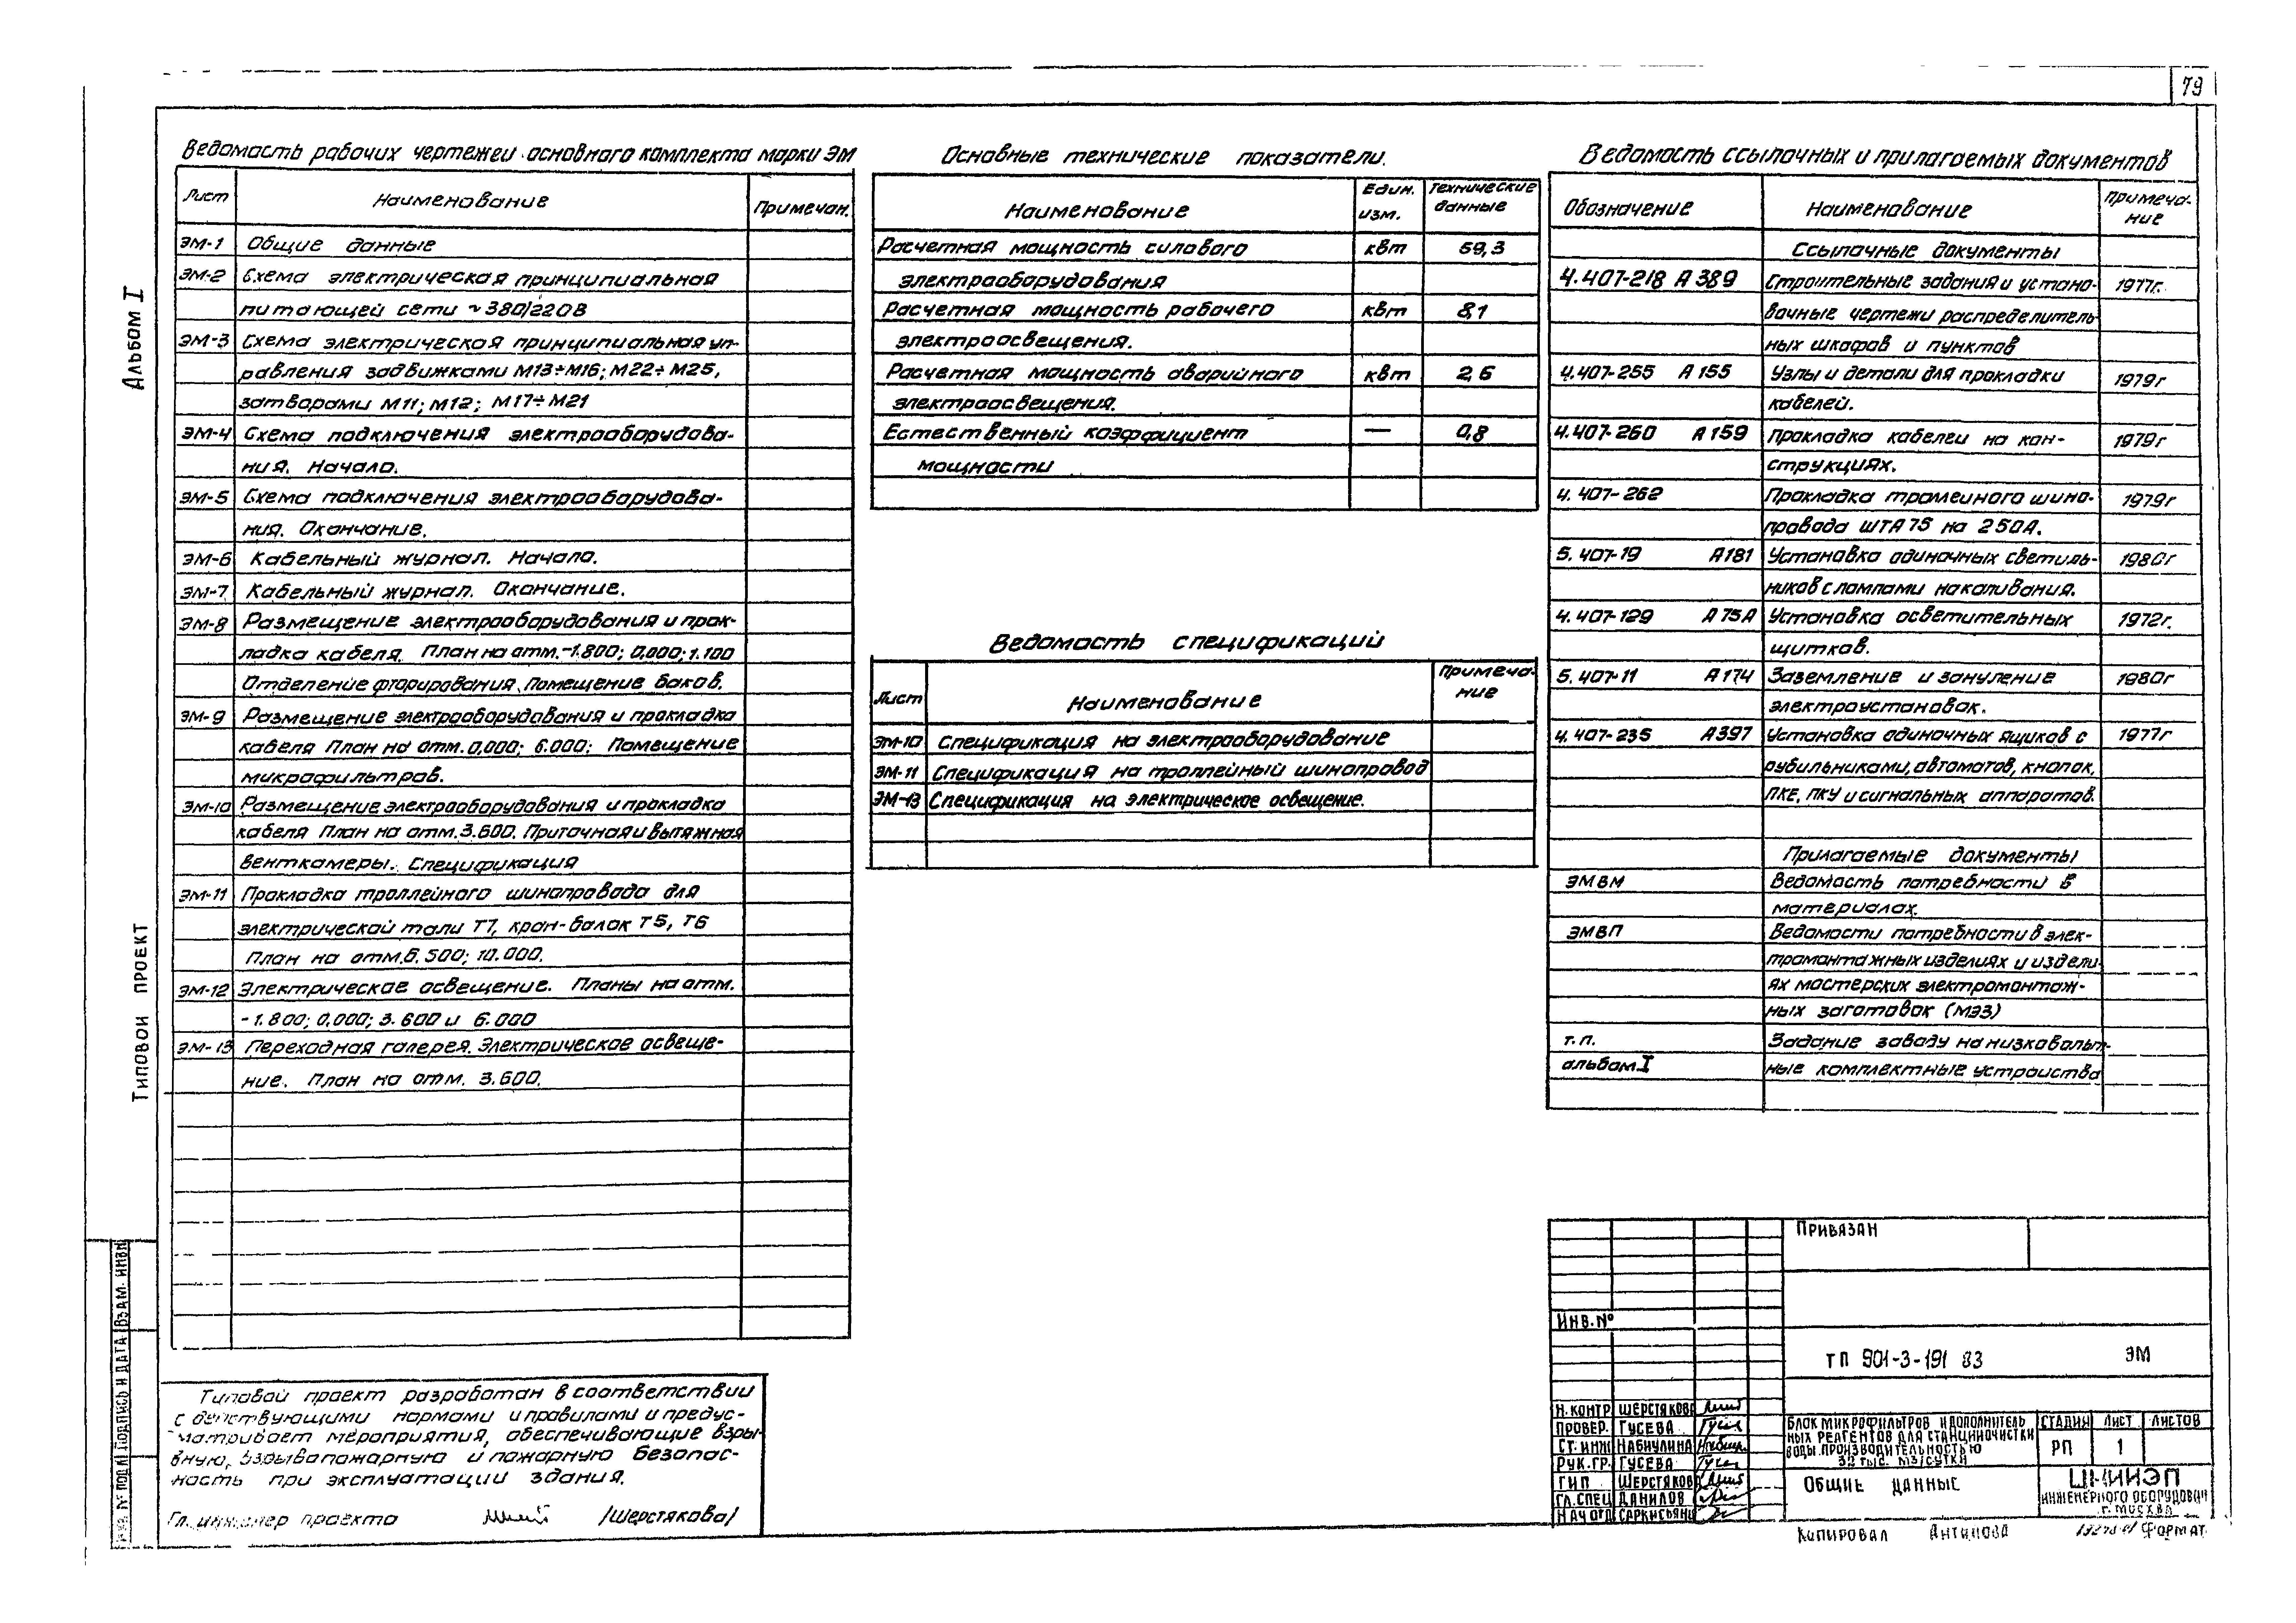 79
Альбом I
Типовой проект
Ведомость рабочих чертежей основного комплекта марки ЭМ
Лист Наименование Примечан.
ЭМ-1 Общие данные
ЭМ-2 Схема электрическая принципиальная
питающей сети ~380/220В
ЭМ-3 Схема электрическая принципиальная уп-
равления задвижками М13÷М16; М22÷М25,
затворами М11; М12; М17÷М21
ЭМ-4 Схема подключения электрооборудова-
ния. Начало.
ЭМ-5 Схема подключения электрооборудова-
ния. Окончание.
ЭМ-6 Кабельный журнал. Начало.
ЭМ-7 Кабельный журнал. Окончание.
ЭМ-8 Размещение электрооборудования и прок-
ладка кабеля. План на отм.-1.800; 0,000; 1.100
Отделение фторирования, Помещение баков.
ЭМ-9 Размещение электрооборудования и прокладка
кабеля План на отм. 0,000; 6.000; Помещение
микрофильтров.
ЭМ-10 Размещение электрооборудования и прокладка
кабеля План на отм. 3.600. Приточная и вытяжная
венткамеры. Спецификация
ЭМ-11 Прокладка троллейного шинопровода для
электрической тали Т7, кран-балок Т5, Т6
План на отм. 6.500; 10.000.
ЭМ-12 Электрическое освещение. Планы на отм.
-1.800; 0,000; 3.600 и 6.000
ЭМ-13 Переходная галерея. Электрическое освеще-
ние. План на отм. 3.600.
Типовой проект разработан в соответствии
с действующими нормами и правилами и предус-
матривает мероприятия, обеспечивающие взры-
вную, взрывопожарную и пожарную безопас-
ность при эксплуатации здания.
Гл. инженер проекта /Шерстякова/
Основные технические показатели.
Наименование Един. изм. Технические данные
Расчетная мощность силового квт 59,3
электрооборудования
Расчетная мощность рабочего квт 8,1
электроосвещения.
Расчетная мощность аварийного квт 2,6
электроосвещения.
Естественный коэффициент — 0,8
мощности
Ведомость спецификаций
Лист Наименование Примеча-ние
ЭМ-10 Спецификация на электрооборудование
ЭМ-11 Спецификация на троллейный шинопровод
ЭМ-13 Спецификация на электрическое освещение.
Ведомость ссылочных и прилагаемых документов
Обозначение Наименование Примеча-ние
Ссылочные документы
4.407-218 А389 Строительные задания и устано- 1977г.
вочные чертежи распределитель
ных шкафов и пунктов
4.407-255 А155 Узлы и детали для прокладки 1979г
кабелей.
4.407-260 А159 Прокладка кабелей на кон- 1979г
струкциях.
4.407-262 Прокладка тролейного шино- 1979г
провода ШТА75 на 250А.
5.407-19 А181 Установка одиночных светиль- 1980г
ников с лампами накаливания.
4.407-129 А75А Установка осветительных 1972г.
щитков.
5.407-11 А174 Заземление и зануление 1980г
электроустановок.
4.407-235 А397 Установка одиночных ящиков с 1977г
рубильниками, автоматов, кнопок,
ПКЕ, ПКУ и сигнальных аппаратов.
Прилагаемые документы
ЭМВМ Ведомость потребности в
материалах.
ЭМВП Ведомости потребности в элек-
тромонтажных изделиях и издели
ях мастерских электромонтаж-
ных заготовок (МЭЗ)
т.п. Задание заводу на низковольт-
альбом I ные комплектные устройства
Привязан
Инв. №
ТП 901-3-191 83 ЭМ
Н.контр Шерстякова
Провер. Гусева
Ст. инж Набиулина
Рук.гр. Гусева
ГИП Шерстякова
Гл.спец Данилов
Нач отд Саркисьянц
Блок микрофильтров и дополнитель
ных реагентов для станции очистки
воды производительностью
32 тыс. м3/сутки
Стадия Лист Листов
РП 1
Общие данные
ЦНИИЭП
инженерного оборудован
г. Москва
Копировал Антипова
Формат
Взам. инв№
Подпись и дата
Инв. № подл